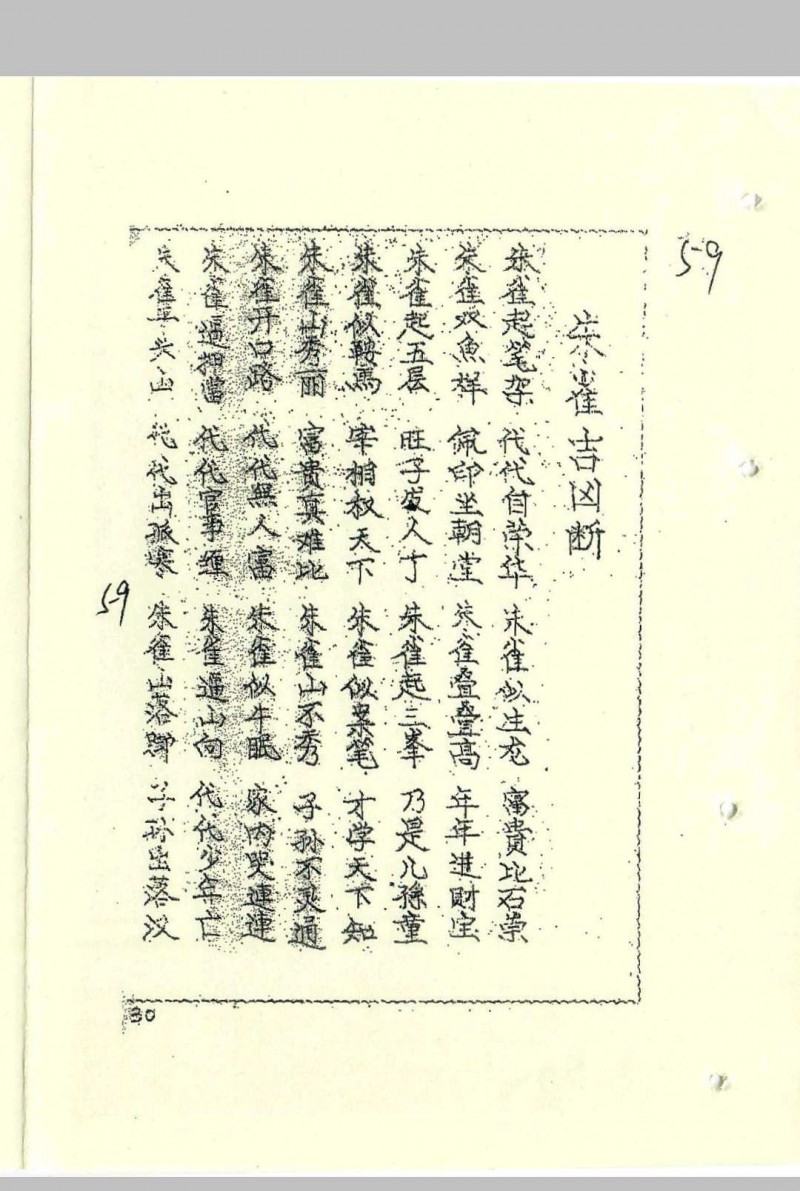 59
朱雀吉凶断
朱雀起笔架 代代自荣华 朱雀似生龙 富貴比石崇
朱雀双魚样 佩印坐朝堂 朱雀叠叠高 年年进財宝
朱雀起五层 旺子发人丁 朱雀起三峯 乃是儿孫童
朱雀似鞍馬 宰相权天下 朱雀似案笔 才学天下知
朱雀山秀丽 富贵真难比 朱雀山不秀 子孙不灵通
朱雀开口路 代代無人富 朱雀似牛眠 家内哭連連
朱雀逼把當 代代官事缠 朱雀逼山向 代代少年亡
朱雀 头山 代代出孤寒 朱雀山落脚 子孙出落汉
59
30